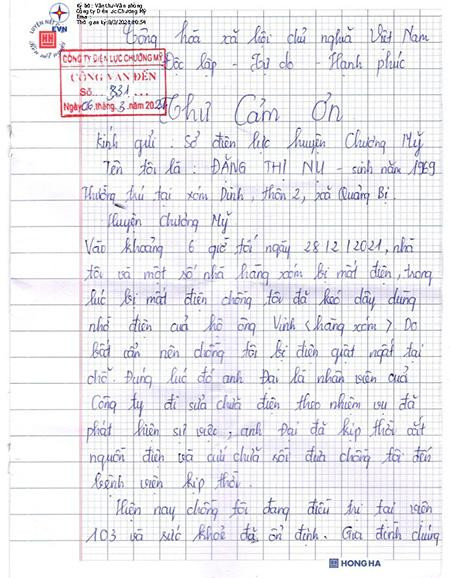 Ký bởi: Văn thư Văn phòng
Công ty Điện lực Chương Mỹ
Ema
EVN
CÔNG TY ĐIỆN LỰC CHƯƠNG MỸ
CÔNG VĂN ĐẾN
Số 331
Ngày 06 tháng 3 năm
Cộng hòa xã hội chủ nghĩa Việt Nam
Độc lập - Tự do - Hạnh phúc
Thư Cảm Ơn
Kính gửi : Sở điện lực huyện Chương Mỹ
Tên tôi là : ĐẶNG THỊ NỤ - sinh năm 1969
Thường trú tại xóm Đình, thôn 2, xã Quảng Bị.
Huyện Chương Mỹ
Vào khoảng 6 giờ tối ngày 28/12/2021, nhà
tôi và một số nhà hàng xóm bị mất điện, trong
lúc bị mất điện chồng tôi đã kéo dây dùng
nhờ điện cuả hộ ông Vinh <hàng xóm>. Do
bất cẩn nên chồng tôi bị điện giật ngất tại
chỗ. Đúng lúc đó anh Đại là nhân viên cuả
Công ty đi sửa chữa điện theo nhiệm vụ đã
phát hiện sự việc, anh Đại đã kịp thời cắt
nguồn điện và cứu chữa rồi đưa chồng tôi đến
bệnh viện kịp thời.
Hiện nay chồng tôi đang điều trị tại viện
103 và sức khoẻ đã ổn định. Gia đình chúng
HONG HA